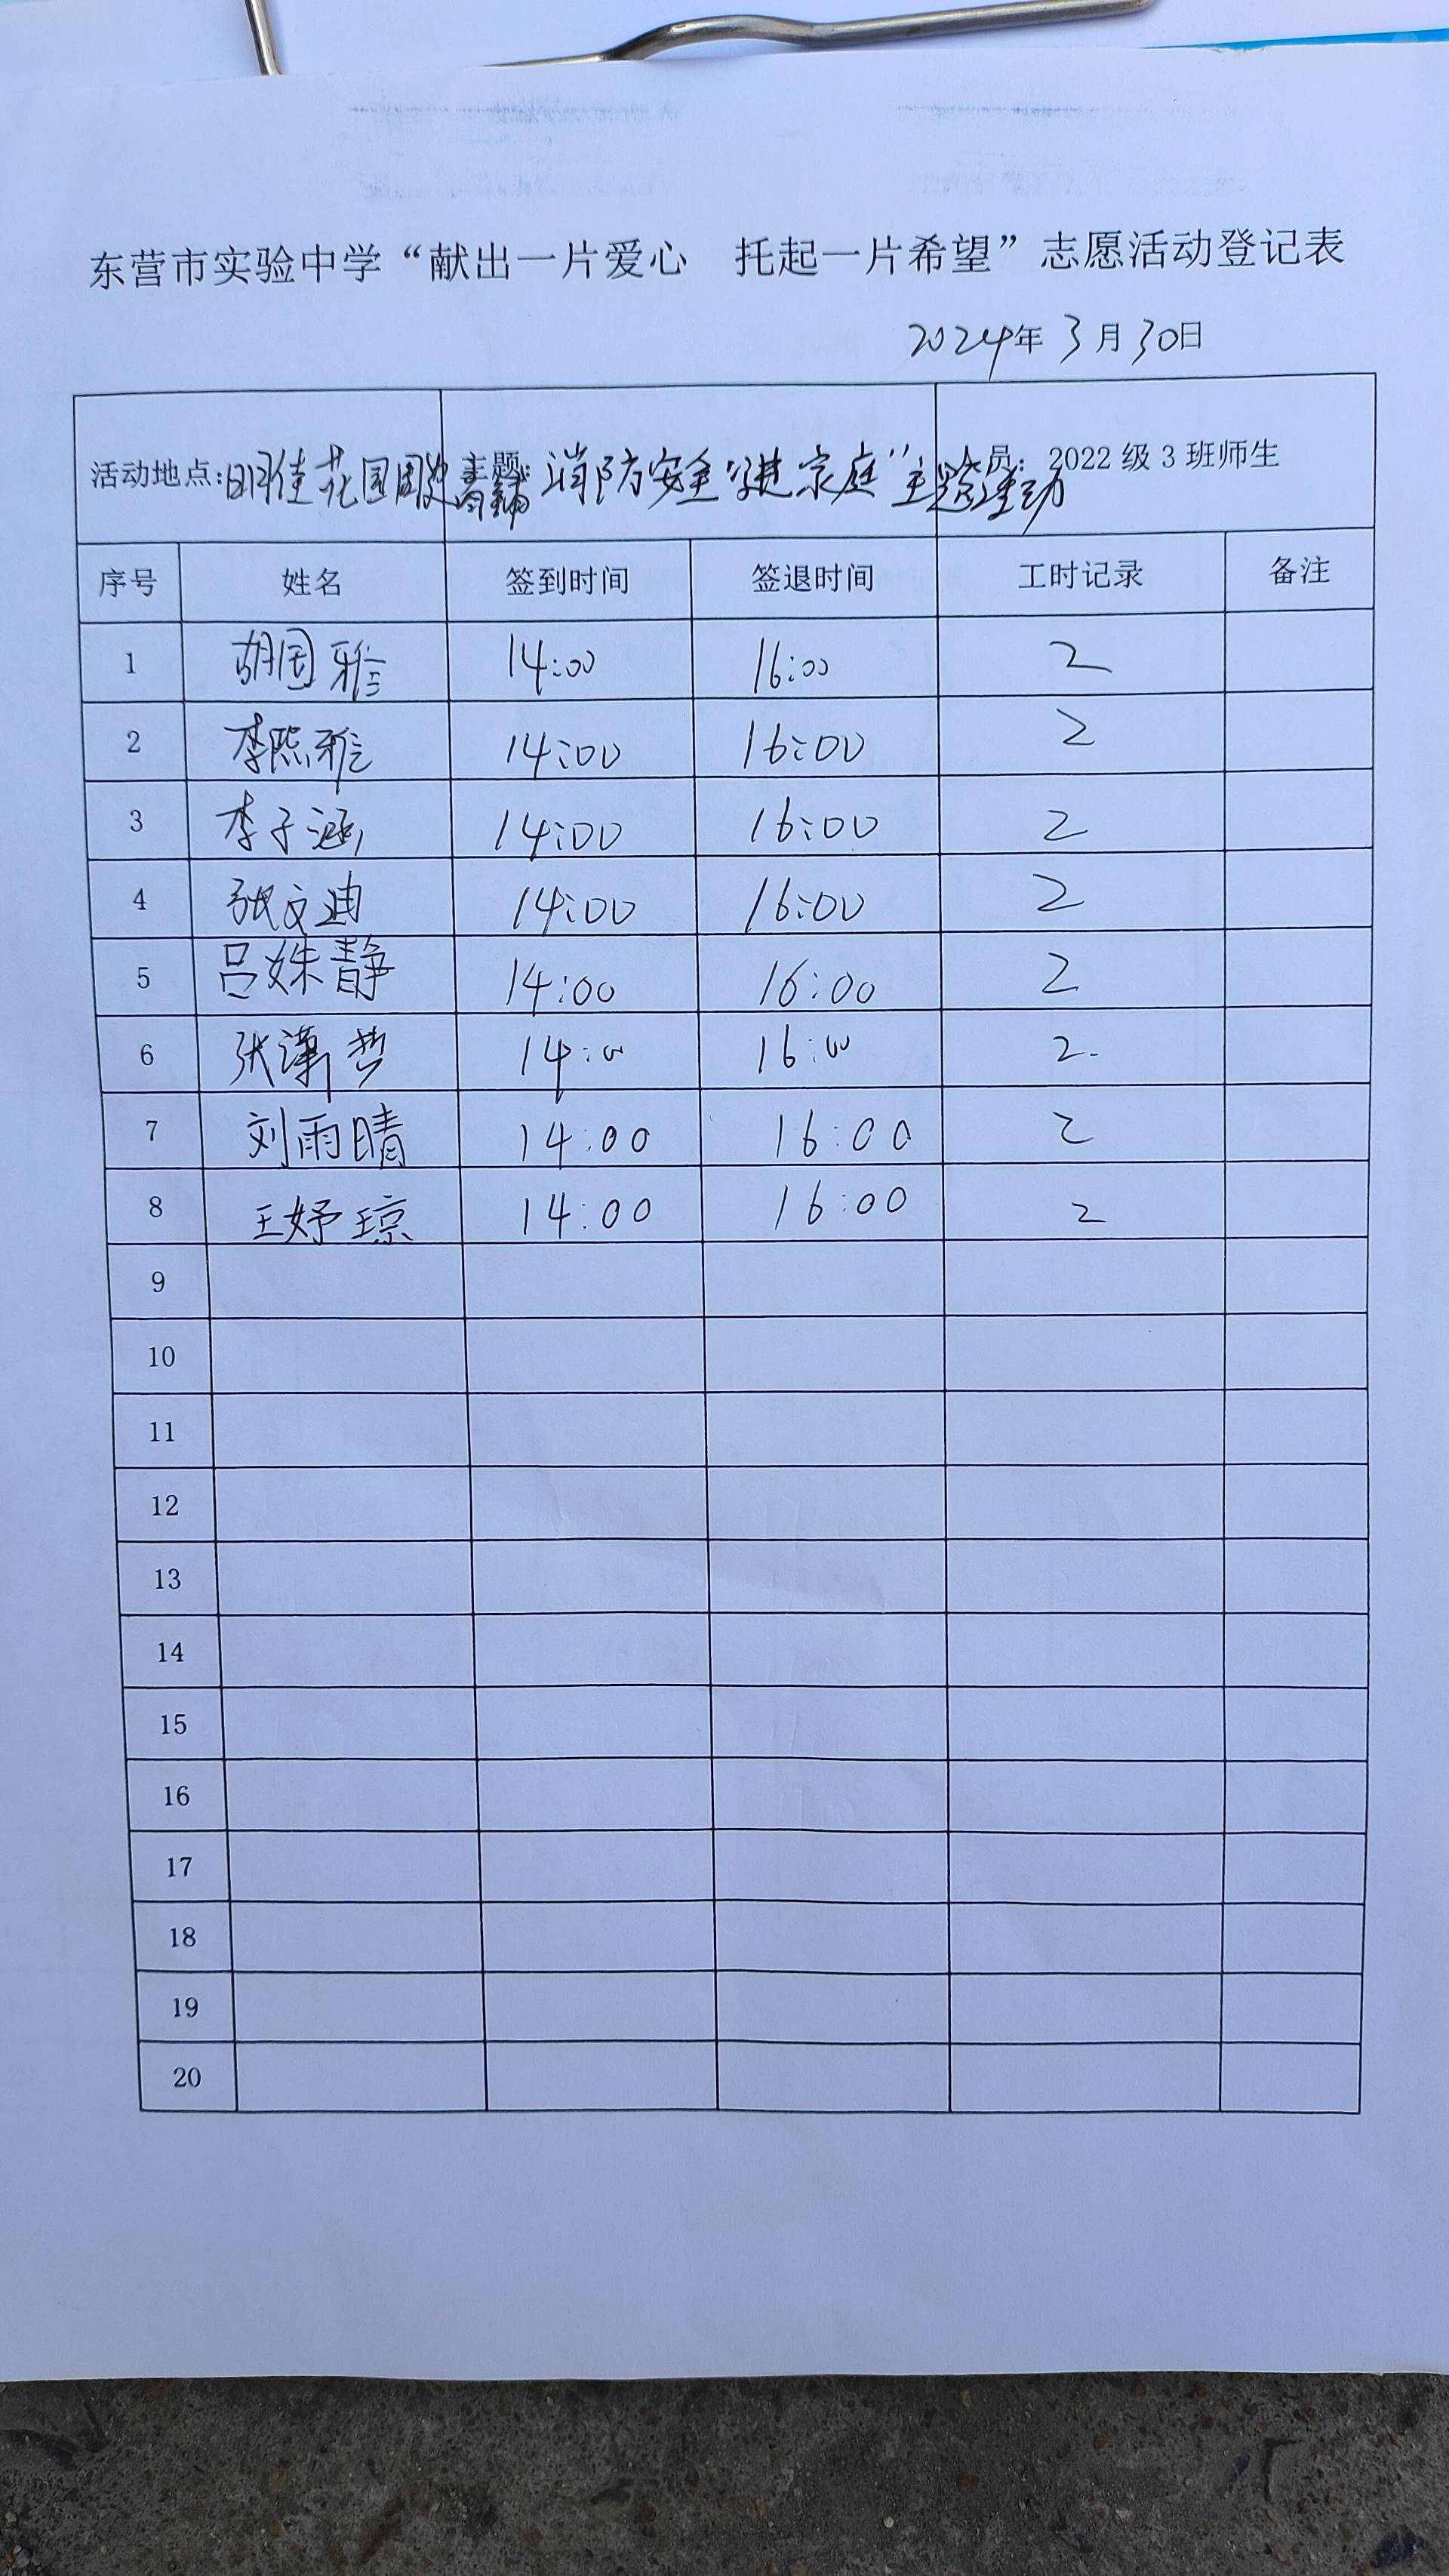 东营市实验中学“献出一片爱心 托起一片希望”志愿活动登记表
2024年3月30日
活动地点:明佳花园周边商铺 主题:消防安全“进家庭”主题活动 人员:2022级3班师生
序号 姓名 签到时间 签退时间 工时记录 备注
1 胡国雅 14:00 16:00 2
2 李熙雅 14:00 16:00 2
3 李子涵 14:00 16:00 2
4 张文迪 14:00 16:00 2
5 吕姝静 14:00 16:00 2
6 张潇哲 14:00 16:00 2.
7 刘雨晴 14:00 16:00 2
8 王妤琼 14:00 16:00 2
9
10
11
12
13
14
15
16
17
18
19
20